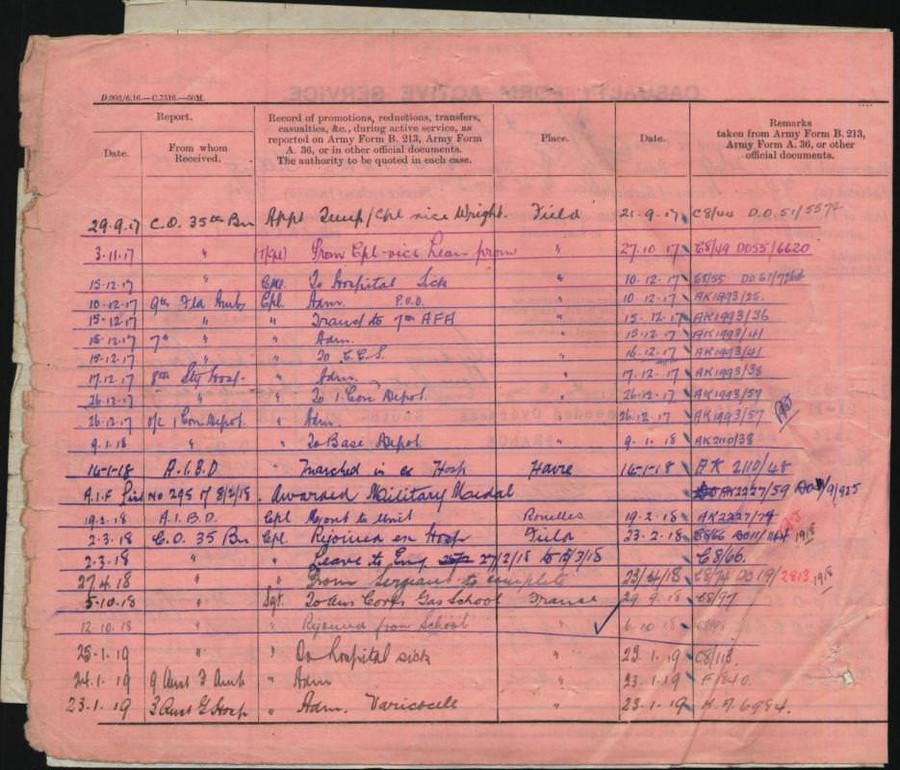 D.901/6.16.—C.7316.—50M.
Report.
Date.
From whom Received.
Record of promotions, reductions, transfers,
casualties, &c., during active service, as
reported on Army Form B. 213, Army Form
A. 36, or in other official documents.
The authority to be quoted in each case.
Place.
Date.
Remarks
taken from Army Form B. 213,
Army Form A. 36, or other
official documents.
29.9.17 C.O. 35th Bn Appt Temp/Cpl vice Wright. Field 21.9.17 C8/44 D.O.51/5574
3.11.17 " (T/Cpl) Prom Cpl vice Lean prom " 27.10.17 C8/49 DO55/6620
15.12.17 " Cpl. To Hospital Sick " 10.12.17 C8/55 DO61/
10.12.17 9th Fld Amb Cpl. Adm. P.U.O. " 10.12.17 AK1993/25.
15.12.17 " " Transf to 7th AFA " 15.12.17 AK1993/36
15.12.17 7th " " Adm. " 15.12.17 AK1993/41
15.12.17 " " To C.C.S. " 16.12.17 AK1993/41
17.12.17 8th Sty Hosp. " Adm. " 17.12.17 AK1993/38
26.12.17 " " To 1 Con Depot. " 26.12.17 AK1993/57
26.12.17 o/c 1 Con Depot. " Adm. 26.12.17 AK1993/57
9.1.18 " " To Base Depot 9.1.18 AK2110/38
14.1.18 A.I.B.D " Marched in ex Hosp Havre 14.1.18 AK 2110/48
A.I.F List No 295 of 8/2/18. Awarded Military Medal AK2227/59 /9/925
19.2.18 A.I.B.D. Cpl to Unit Rouelles 19.2.18 AK2227/74
2.3.18 C.O. 35 Bn Cpl. Rejoined ex Hosp Field 23.2.18 C8/66 DO11/ 1918
2.3.18 " " Leave to Eng 27/2/18 to /3/18 C8/66.
27.4.18 " " Prom Sergeant to complete 23/4/18 C8/74 DO19/2813 1918
5.10.18 " Sgt. To Aus Corps Gas School France 29.9.18 C8/97
12.10.18 " " Rejoined from School " 6.10.18
25.1.19 " " To hospital sick " 23.1.19 C8/113.
24.1.19 9 Aust F Amb " Adm " 23.1.19 F/840.
23.1.19 3 Aust G Hosp " Adm. Varicocele " 23.1.19 K.A.6984.